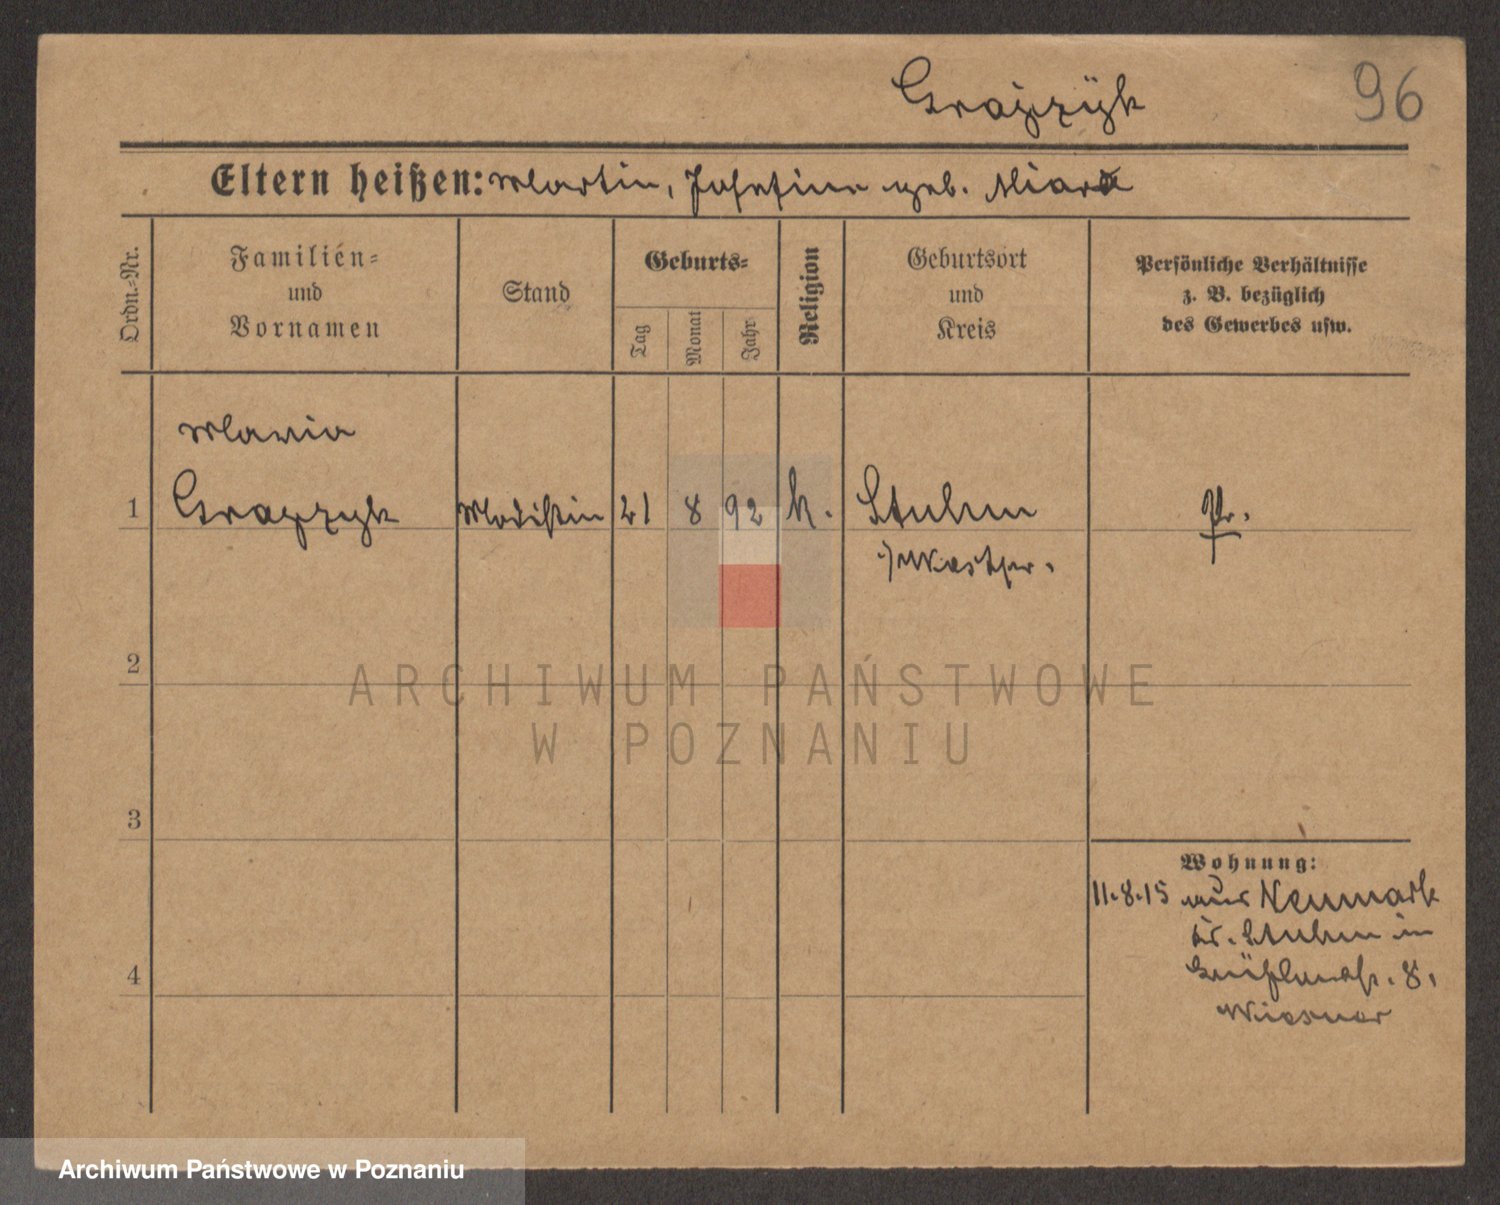 96
Eltern heißen: Martin, Josefine geb.
Ordn.-Nr.
Familien-
und
Vornamen
Stand
Geburts-
Tag
Monat
Jahr
Religion
Geburtsort
und
Kreis
Persönliche Verhältnisse
z. B. bezüglich
des Gewerbes usw.
Maria
1 Modistin 21 8 92 k. Stuhm Pr.
i/ Westpr.
2
3
4
Wohnung:
11.8.15 aus Neumark
Kr. Stuhm in
8.
Wiesner
ARCHIWUM PAŃSTWOWE
W POZNANIU
Archiwum Państwowe w Poznaniu